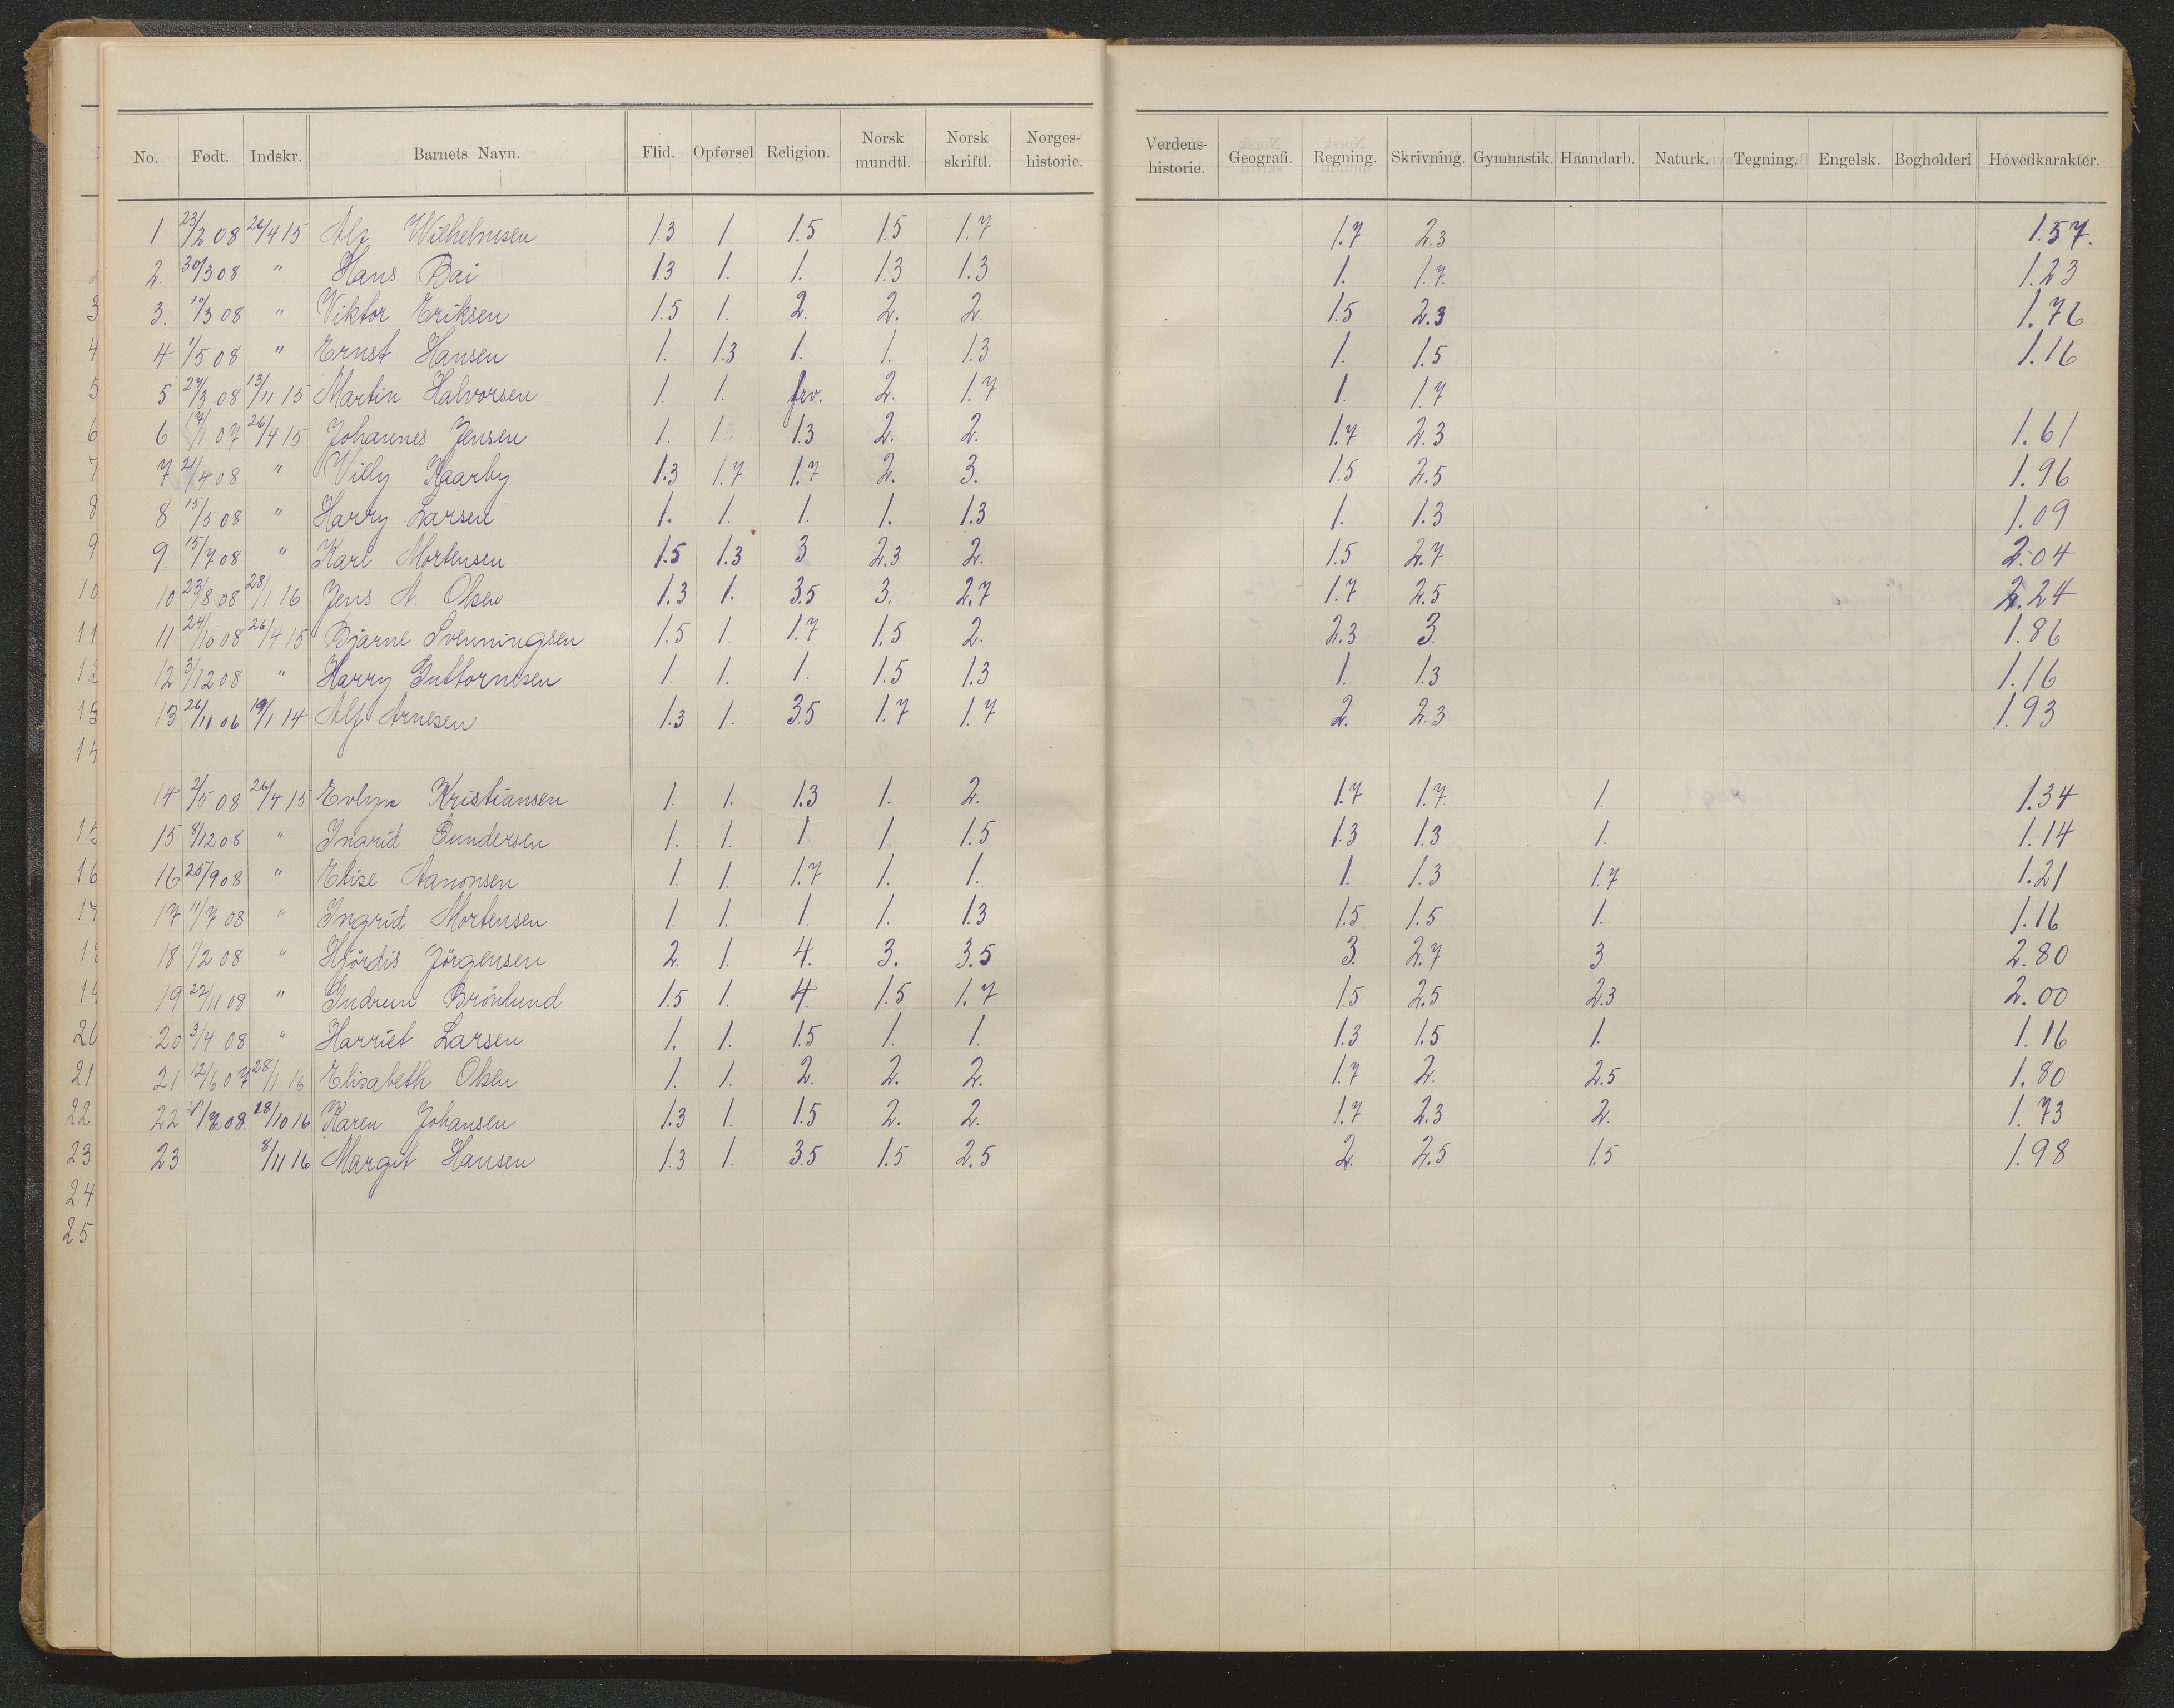 No. Født. Indskr. Barnets Navn. Flid. Opførsel Religion. Norsk mundtl. Norsk skriftl. Norges-historie. Verdens-historie. Geografi. Regning. Skrivning. Gymnastik. Haandarb. Naturk. Tegning. Engelsk. Bogholderi Hovedkarakter.
1 23/2 08 26/4 15 Alf Wilhelmsen 1.3 1. 1.5 1.5 1.7 1.7 2.3 1.57.
2. 30/3 08 " Hans Bai 1.3 1. 1. 1.3 1.3 1. 1.7. 1.23
3. 10/3 08 " Viktor Eriksen 1.5 1. 2. 2. 2. 1.5 2.3 1.76
4 1/5 08 " Ernst Hansen 1. 1.3 1. 1. 1.3 1. 1.5 1.16
5 27/3 08 13/11 15 Martin Halvorsen 1. 1. frv. 2. 1.7 1. 1.7
6 17/1 07 26/4 15 Johannes Jensen 1. 1. 1.3 2. 2. 1.7 2.3 1.61
7 21/4 08 " Villy Kaarby. 1.3 1.7 1.7 2. 3. 1.5 2.5 1.96
8 15/5 08 " Harry Larsen 1. 1. 1. 1. 1.3 1. 1.3 1.09
9. 15/7 08 " Karl Mortensen 1.5 1.3 3 2.3 2. 1.5 2.7 2.04
10 23/8 08 28/1 16 Jens A. Olsen 1.3 1. 3.5 3. 2.7 1.7 2.5 2.24
11 24/10 08 26/4 15 Bjarne Svenningsen 1.5 1. 1.7 1.5 2. 2.3 3. 1.86
12 3/12 08 " Harry Guttormsen 1. 1. 1. 1.5 1.3 1. 1.3 1.16
13 26/11 06 19/1 14 Alf Arnesen 1.3 1. 3.5 1.7 1.7 2. 2.3 1.93
14 2/5 08 26/4 15 Evlyn Kristiansen 1. 1. 1.3 1. 2. 1.7 1.7 1. 1.34
15 8/12 08 " Ingrid Gundersen 1. 1. 1. 1. 1.5 1.3 1.3 1. 1.14
16 25/9 08 " Elise Aanonsen 1. 1. 1.7 1. 1. 1. 1.3 1.7 1.21
17 11/7 08 " Ingrid Mortensen 1. 1. 1. 1. 1.3 1.5 1.5 1. 1.16
18 1/2 08 " Hjørdis Jørgensen 2. 1. 4. 3. 3.5 3. 2.7 3. 2.80
19 22/11 08 " Gudrun Brönlund 1.5 1. 4. 1.5 1.7 1.5 2.5 2.3 2.00
20 3/4 08 " Harriet Larsen 1. 1. 1.5 1. 1. 1.3 1.5 1. 1.16
21 12/6 07 28/1 16 Elisabeth Olsen 1. 1. 2. 2. 2. 1.7 2. 2.5 1.80
22 08 18/10 16 Karen Johansen 1.3 1. 1.5 2. 2. 1.7 2.3 2. 1.73
23 8/11 16 Margit Hansen 1.3 1. 3.5 1.5 2.5 2. 2.5 1.5 1.98
3
4
5
6
7
8
9
10
11
12
13
14
15
16
17
18
19
20
21
22
23
24
25